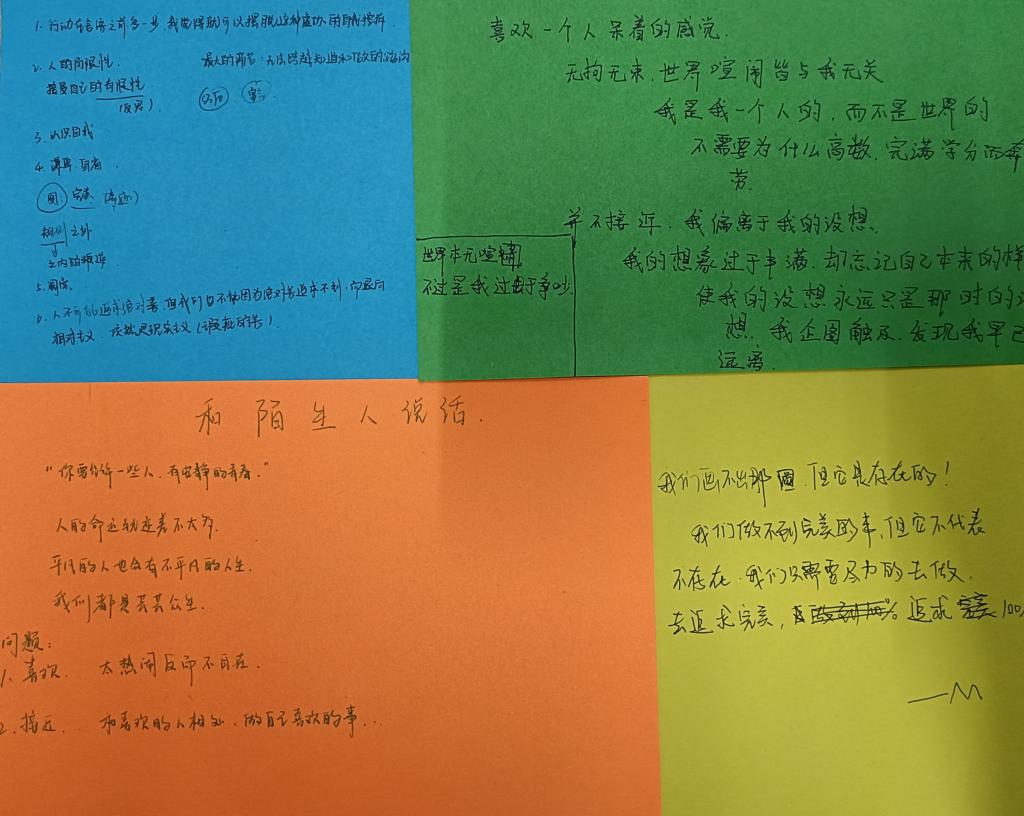 1. 行动在言语之前多一步,我觉得就可以摆脱这种虚妄的自我
2. 人的局限性
最大的痛苦:无法跨越知道和做到的
接受自己的有限性
3. 认识自我
4. 自省
圆: 完美
规则之外
5.
6. 人不可能追求绝对善,但我们也不能因为绝对善追求不到,而
相对主义
喜欢一个人呆着的感觉.
无拘无束,世界喧闹皆与我无关
我是我一个人的,而不是世界的
不需要为什么高数、完满学分而奔
劳.
并不接近,我偏离于我的设想、
我的想象过于丰满,却忘记自己本来的样
使我的设想永远只是那时的设
想,我企图触及,发现我早已
远离.
世界本无喧
不过是我过于争吵.
和陌生人说话.
"你要允许一些人,有安静的青春."
人的命运轨迹差不太多.
平凡的人也会有不平凡的人生.
我们都是芸芸众生.
问题:
1. 喜欢. 太热闹反而不自在.
2. 接近. 和喜欢的人相处,做自己喜欢的事...
我们画不出那圆,但它是存在的!
我们做不到完美的事,但它不代表
不存在.我们只需要尽力的去做.
去追求完美, 追求 100
—M